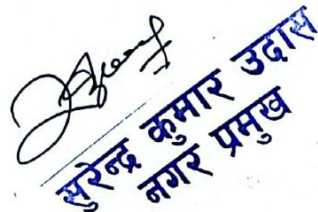 सुरेन्द्र कुमार उदास
नगर प्रमुख